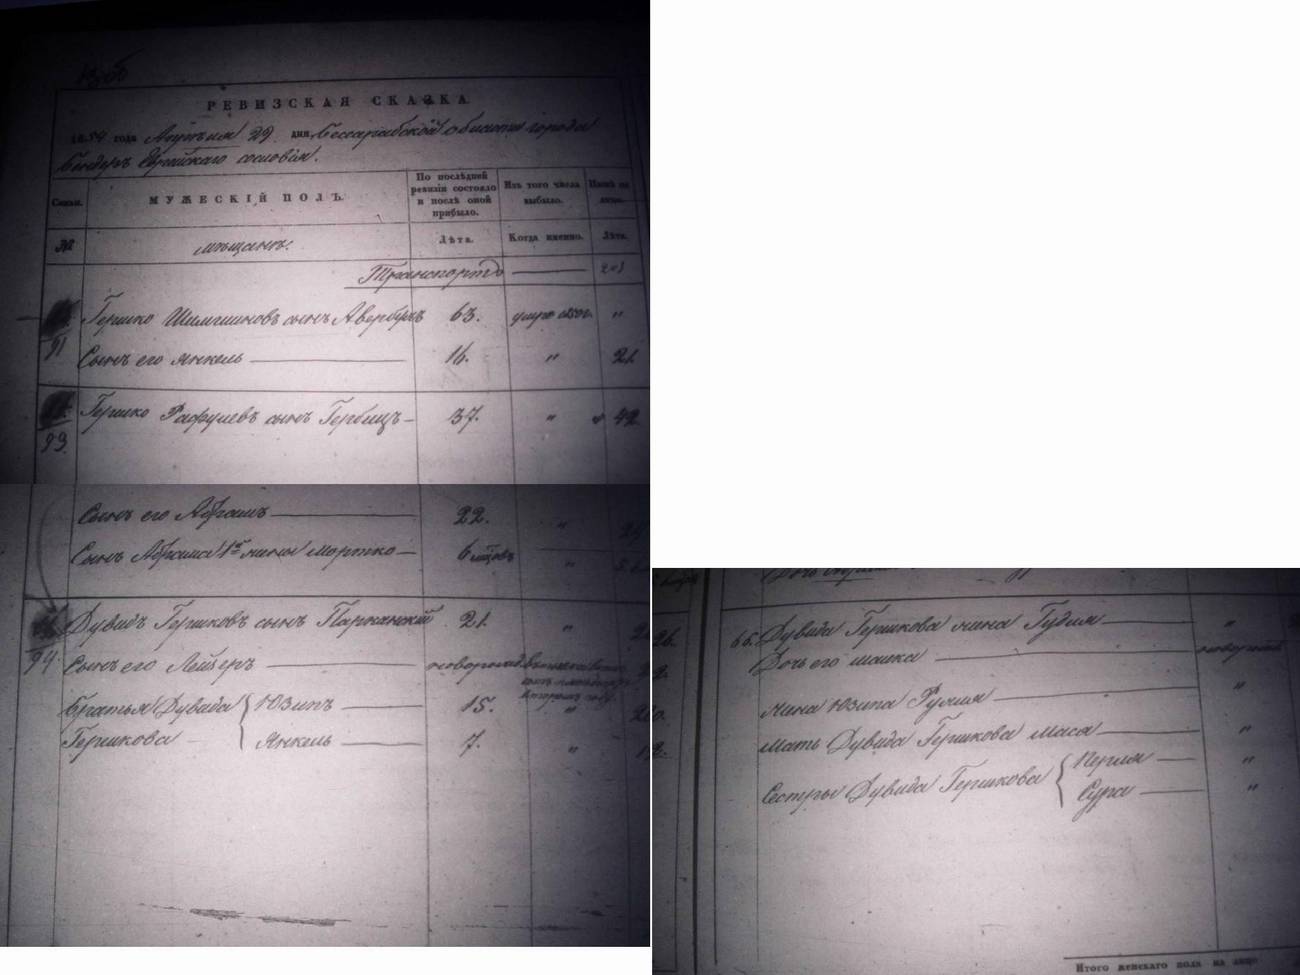 РЕВИЗСКАЯ СКАЗКА
1854 года Апрѣля 29 дня, Бессарабской области города
Бендеръ Еврейскаго сословія.
Семьи. МУЖЕСКІЙ ПОЛЪ. По послѣдней ревизіи состояло и послѣ оной прибыло. Изъ того числа выбыло. Нынѣ на лицо.
№ мѣщанъ. Лѣта. Когда именно. Лѣта.
Транспортъ
91 Гершко сынъ Авербухъ 63. "
Сынъ его Янкель 16. " 21.
93 Гершко сынъ 37. " 42
Сынъ его Абрамъ 22. "
Сынъ Абрама 1й жены Мортко 6 "
94. Дувидъ Гершковъ сынъ Парканскій 21. "
Сынъ его Лейзеръ новорожд.
Братья Дувида Юзипъ 15. " 20.
Гершкова Янкель 7. " 12.
66. Дувида Гершкова жена Гудля "
Дочь его новорожд
жена Юзипа Рухля "
Мать Дувида Гершкова Маса "
Сестры Дувида Гершкова Перля "
Сура "
Итого женскаго пола на лицо